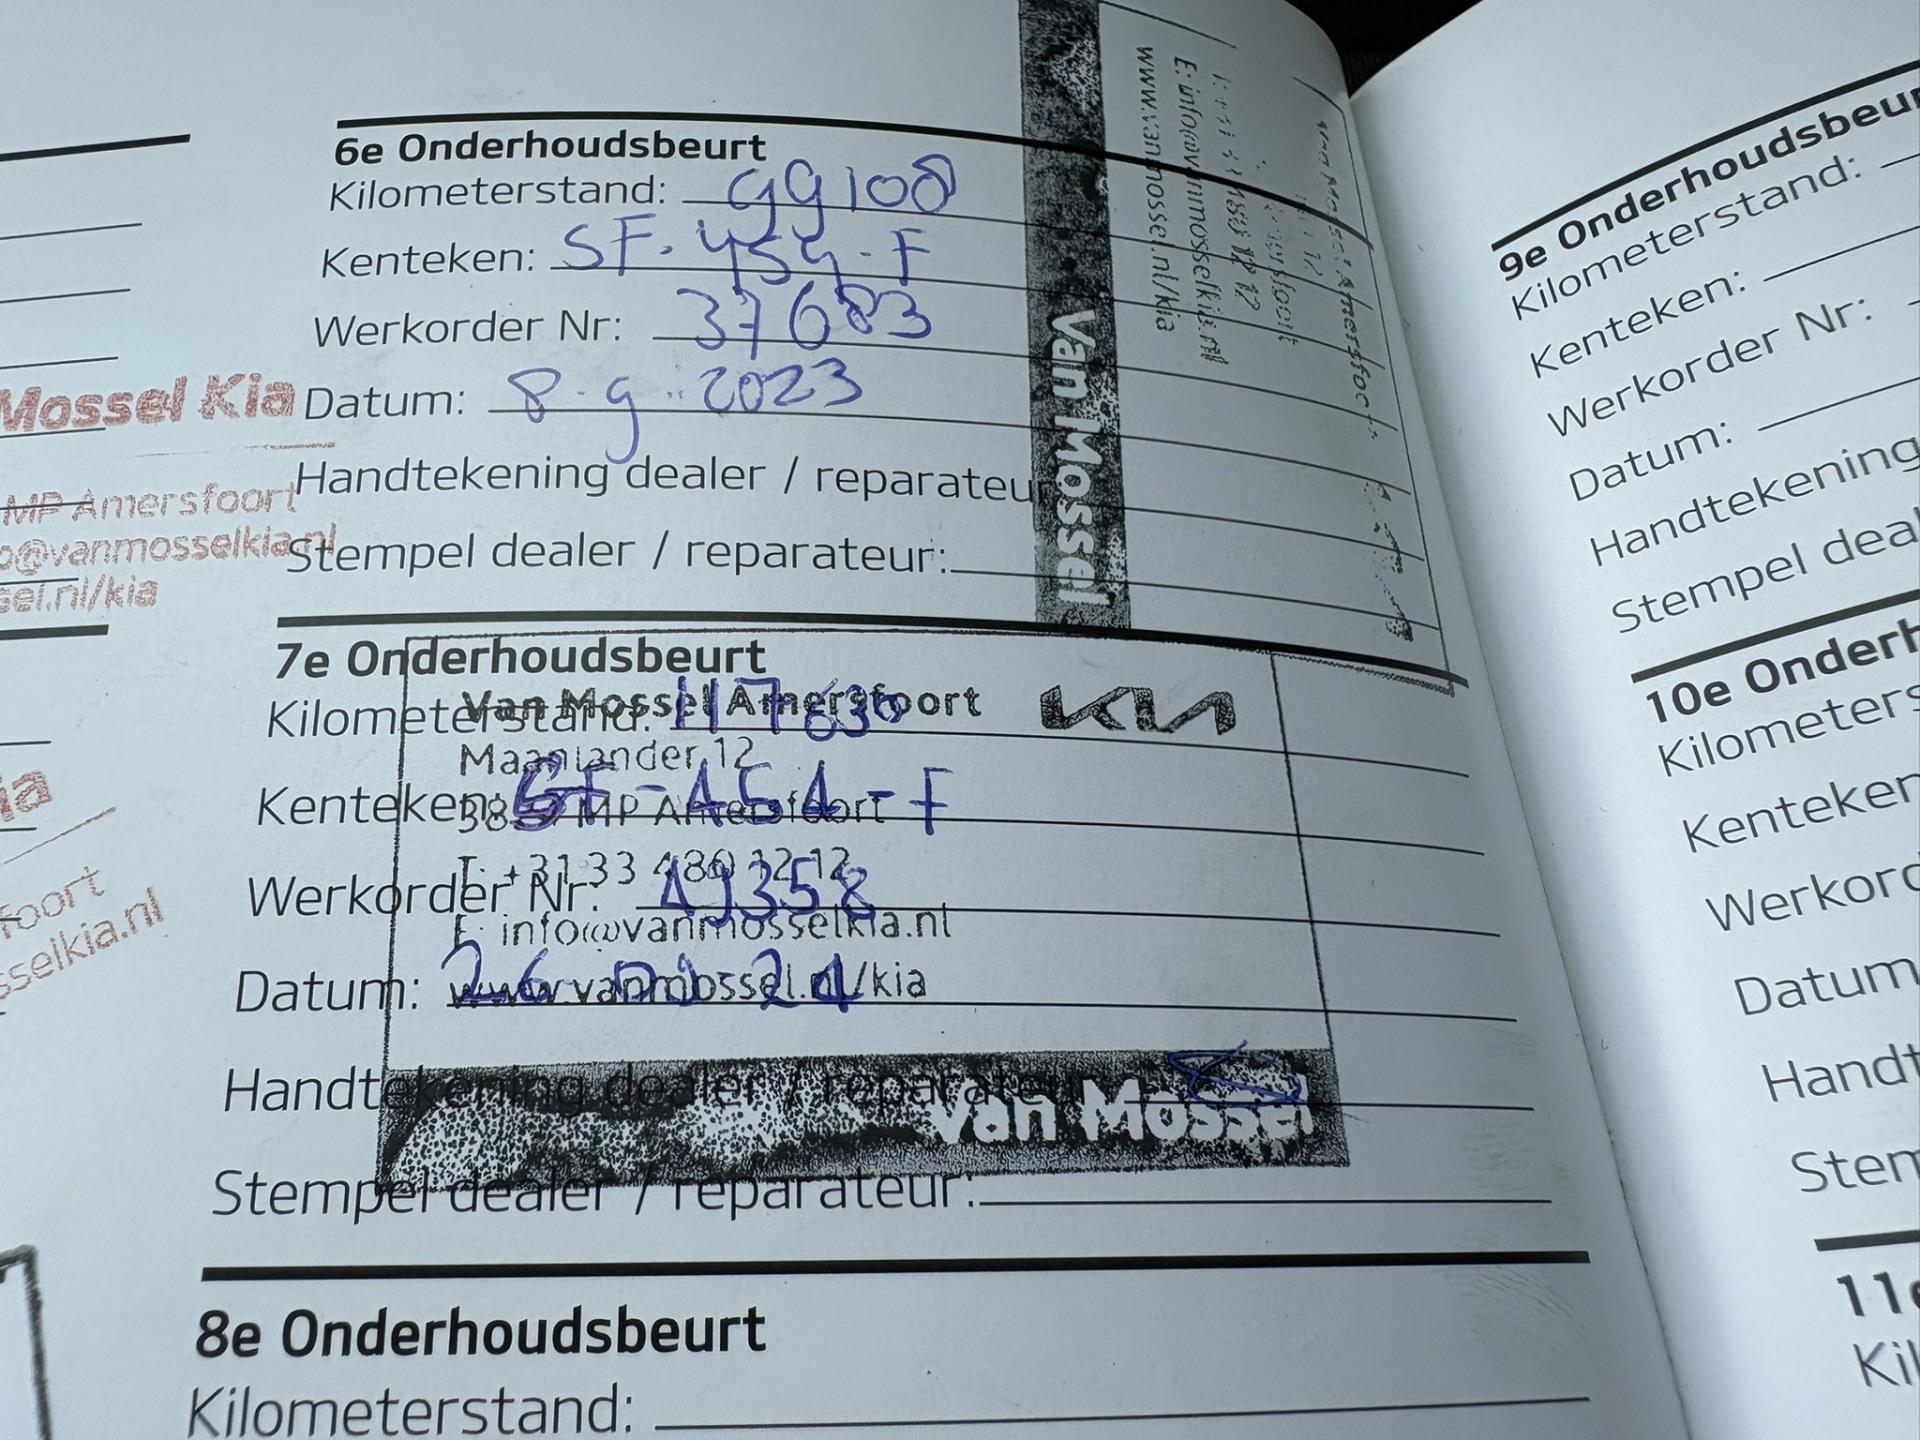 6e Onderhoudsbeurt
Kilometerstand: 99108
Kenteken: SF-454-F
Werkorder Nr: 37683
Datum: 8-9-2023
Handtekening dealer / reparateur
Stempel dealer / reparateur:
Van Mossel
E: info@vanmosselkia.nl
www.vanmossel.nl/kia
Mossel Kia
MP Amersfoort
@vanmosselkia.nl
sel.nl/kia
7e Onderhoudsbeurt
Kilometerstand:
Van Mossel Amersfoort KIA
Maanlander 12
Kenteken: SF-454-F
MP Amersfoort
T: +31 33 480 12 12
Werkorder Nr: 49358
E: info@vanmosselkia.nl
Datum:
www.vanmossel.nl/kia
Handtekening dealer / reparateur
Van Mossel
Stempel dealer / reparateur:
8e Onderhoudsbeurt
Kilometerstand:
ia
foort
sselkia.nl
9e Onderhoudsbeur
Kilometerstand:
Kenteken:
Werkorder Nr:
Datum:
Handtekening
Stempel deal
10e Onderh
Kilometers
Kenteken
Werkord
Datum
Handt
Stem
11e
Kil